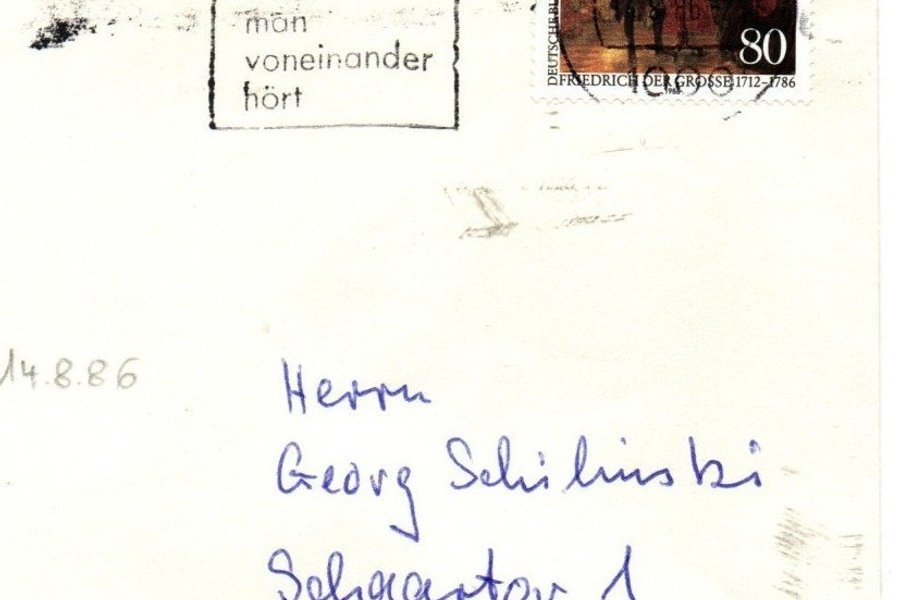 man
voneinander
hört
80
DFRIEDRICH DER GROSSE 1712-1786
1986
14.8.86
Herrn
Georg Schilinski
1